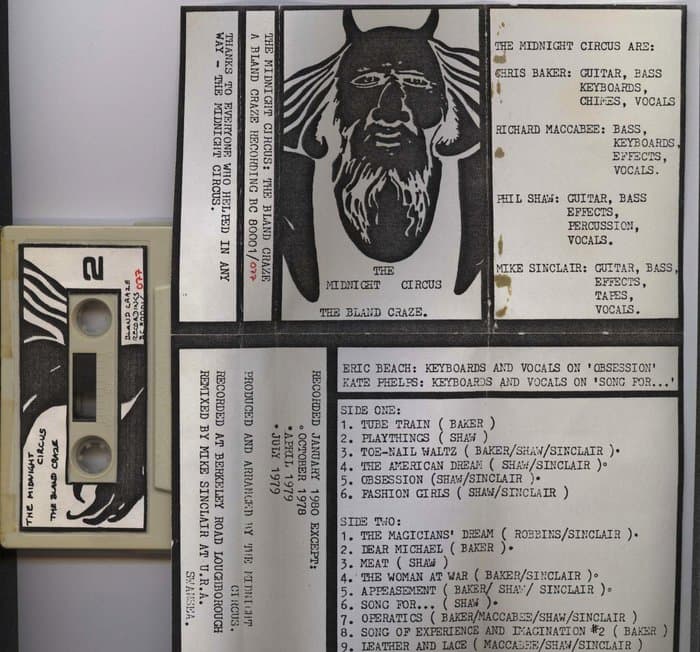 THE MIDNIGHT CIRCUS: THE BLAND CRAZE
A BLAND CRAZE RECORDING BC 80001/077
THANKS TO EVERYONE WHO HELPED IN ANY
WAY - THE MIDNIGHT CIRCUS.
THE
MIDNIGHT CIRCUS
THE BLAND CRAZE.
THE MIDNIGHT CIRCUS ARE:
CHRIS BAKER: GUITAR, BASS
KEYBOARDS,
CHIMES, VOCALS
RICHARD MACCABEE: BASS,
KEYBOARDS,
EFFECTS,
VOCALS.
PHIL SHAW: GUITAR, BASS
EFFECTS,
PERCUSSION,
VOCALS.
MIKE SINCLAIR: GUITAR, BASS,
EFFECTS,
TAPES,
VOCALS.
2
BLAND CRAZE
RECORDINGS
BC 80001/ 077
THE MIDNIGHT
CIRCUS
THE BLAND CRAZE
RECORDED JANUARY 1980 EXCEPT:
° OCTOBER 1978
• APRIL 1979
• JULY 1979
PRODUCED AND ARRANGED BY THE MIDNIGHT
CIRCUS.
RECORDED AT BERKELEY ROAD LOUGHBOROUGH
REMIXED BY MIKE SINCLAIR AT U.R.A.
SWANSEA.
ERIC BEACH: KEYBOARDS AND VOCALS ON 'OBSESSION'
KATE PHELPS: KEYBOARDS AND VOCALS ON 'SONG FOR...'
SIDE ONE:
1. TUBE TRAIN ( BAKER )
2. PLAYTHINGS ( SHAW )
3. TOE-NAIL WALTZ ( BAKER/SHAW/SINCLAIR )•
4. THE AMERICAN DREAM ( SHAW/SINCLAIR )°
5. OBSESSION (SHAW/SINCLAIR )•
6. FASHION GIRLS ( SHAW/SINCLAIR )
SIDE TWO:
1. THE MAGICIANS' DREAM ( ROBBINS/SINCLAIR )•
2. DEAR MICHAEL ( BAKER )•
3. MEAT ( SHAW )
4. THE WOMAN AT WAR ( BAKER/SINCLAIR )°
5. APPEASEMENT ( BAKER/ SHAW/ SINCLAIR )°
6. SONG FOR... ( SHAW )•
7. OPERATICS ( BAKER/MACCABEE/SHAW/SINCLAIR )
8. SONG OF EXPERIENCE AND IMAGINATION #2 ( BAKER )
9. LEATHER AND LACE ( MACCABEE/SHAW/SINCLAIR )